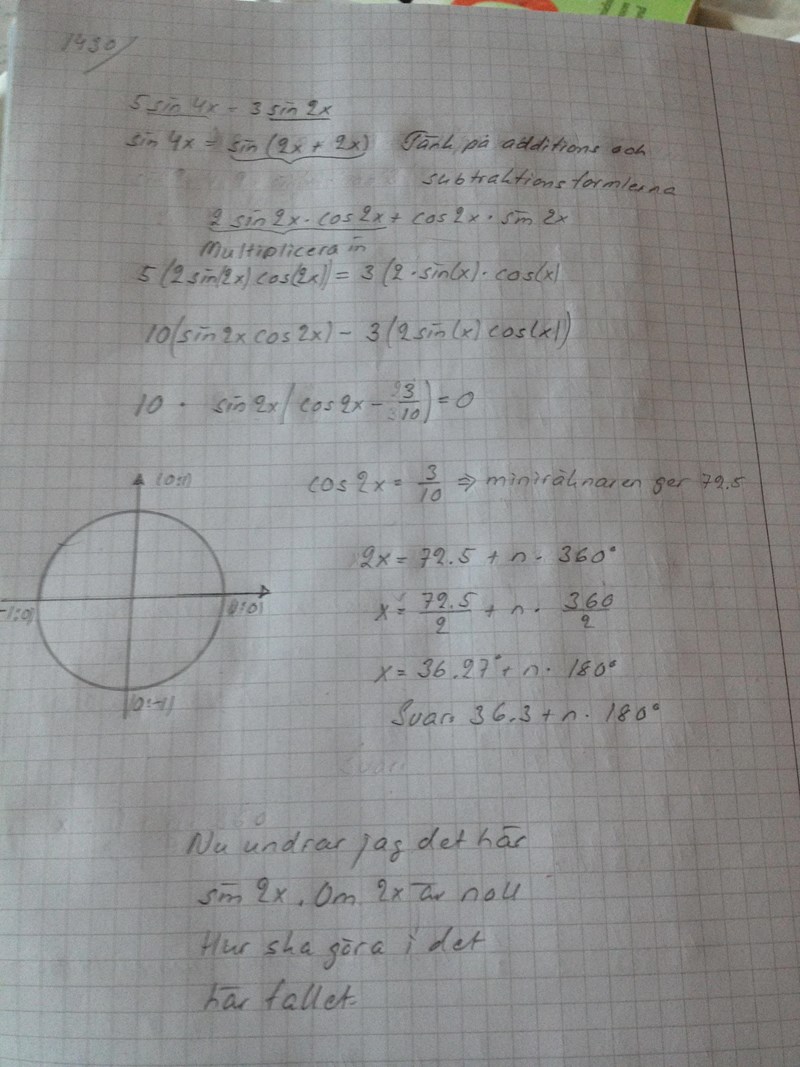 1430/
5 sin 4x = 3 sin 2x
sin 4x = sin (2x + 2x) Tänk på additions och
subtraktionsformlerna
2 sin 2x · cos 2x + cos 2x · sin 2x
Multiplicera in
5 (2 sin(2x) cos(2x)) = 3 (2 · sin(x) · cos(x)
10(sin 2x cos 2x) - 3(2 sin(x) cos(x))
10 · sin 2x (cos 2x - 3/10) = 0
(0:1)
cos 2x = 3/10 ⇒ miniräknaren ger 72.5
2x = 72.5 + n · 360°
-1:0)
(1:0)
x = 72.5/2 + n · 360/2
x = 36.27° + n · 180°
(0:-1)
Svar: 36.3 + n · 180°
Svar:
Nu undrar jag det här
sin 2x. Om 2x är noll
Hur ska göra i det
här fallet